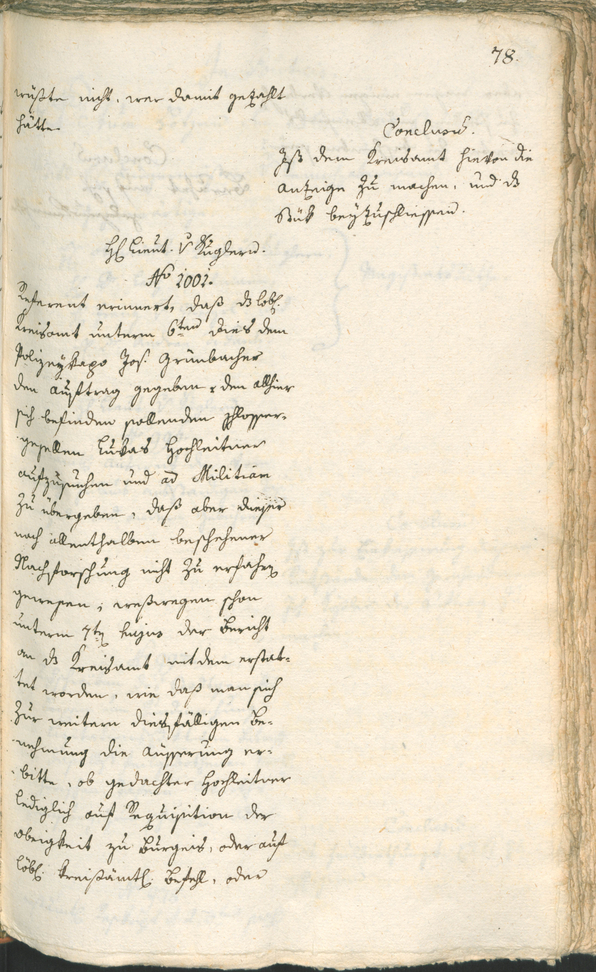 78.
wüßte nicht, wer damit gezahlt
hätte.
Conclusum.
Ist dem Kreisamt hievon die
Anzeige zu machen, und ds
Stük beyzuschliessen.
H. Lieut. v Kuglern.
No 1001.
Referent erinnert, daß ds löbl.
Kreisamt unterm 6ten dies dem
Polizeykapo Jos. Grünbacher
den Auftrag gegeben, den allhier
sich befinden sollenden Schlosser-
gesellen Lukas Hochleitner
aufzusuchen und ad Militiam
zu übergeben, daß aber dieser
nach allenthalben beschehener
Nachforschung nicht zu erfahren
gewesen; weßwegen schon
unterm 7ten hujus der Bericht
an ds Kreisamt mit dem erstat-
tet worden, wie daß man sich
zur weitern diesfälligen Be-
nehmung die Äusserung er-
bitte, ob gedachter Hochleitner
lediglich auf Requisition der
Obrigkeit zu Bürgeis, oder auf
löbl. kreisämtl. Befehl, oder